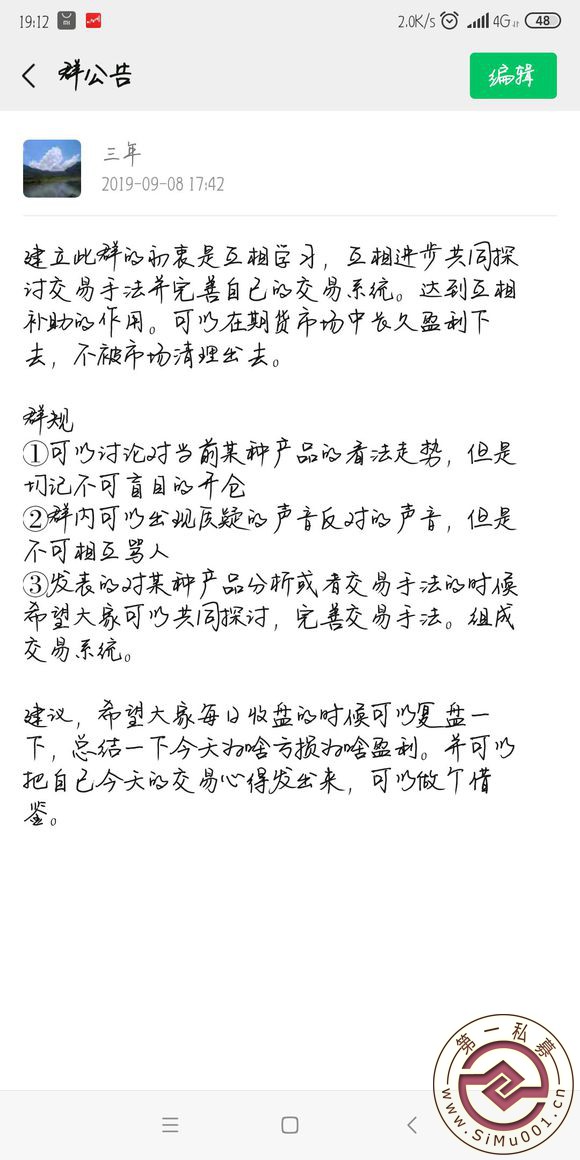 19:12
2.0K/s 4G 48
群公告
编辑
三年
2019-09-08 17:42
建立此群的初衷是互相学习，互相进步共同探
讨交易手法并完善自己的交易系统。达到互相
补助的作用。可以在期货市场中长久盈利下
去，不被市场清理出去。
群规
①可以讨论对当前某种产品的看法走势，但是
切记不可盲目的开仓
②群内可以出现质疑的声音反对的声音，但是
不可相互骂人
③发表的对某种产品分析或者交易手法的时候
希望大家可以共同探讨，完善交易手法。组成
交易系统。
建议，希望大家每日收盘的时候可以复盘一
下，总结一下今天为啥亏损为啥盈利。并可以
把自己今天的交易心得发出来，可以做个借
鉴。
第一私募
www.SiMu001.cn